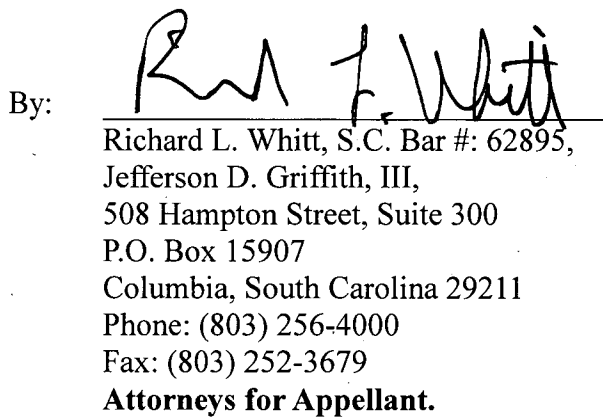 By: Richard L. Whitt
Richard L. Whitt, S.C. Bar #: 62895,
Jefferson D. Griffith, III,
508 Hampton Street, Suite 300
P.O. Box 15907
Columbia, South Carolina 29211
Phone: (803) 256-4000
Fax: (803) 252-3679
Attorneys for Appellant.